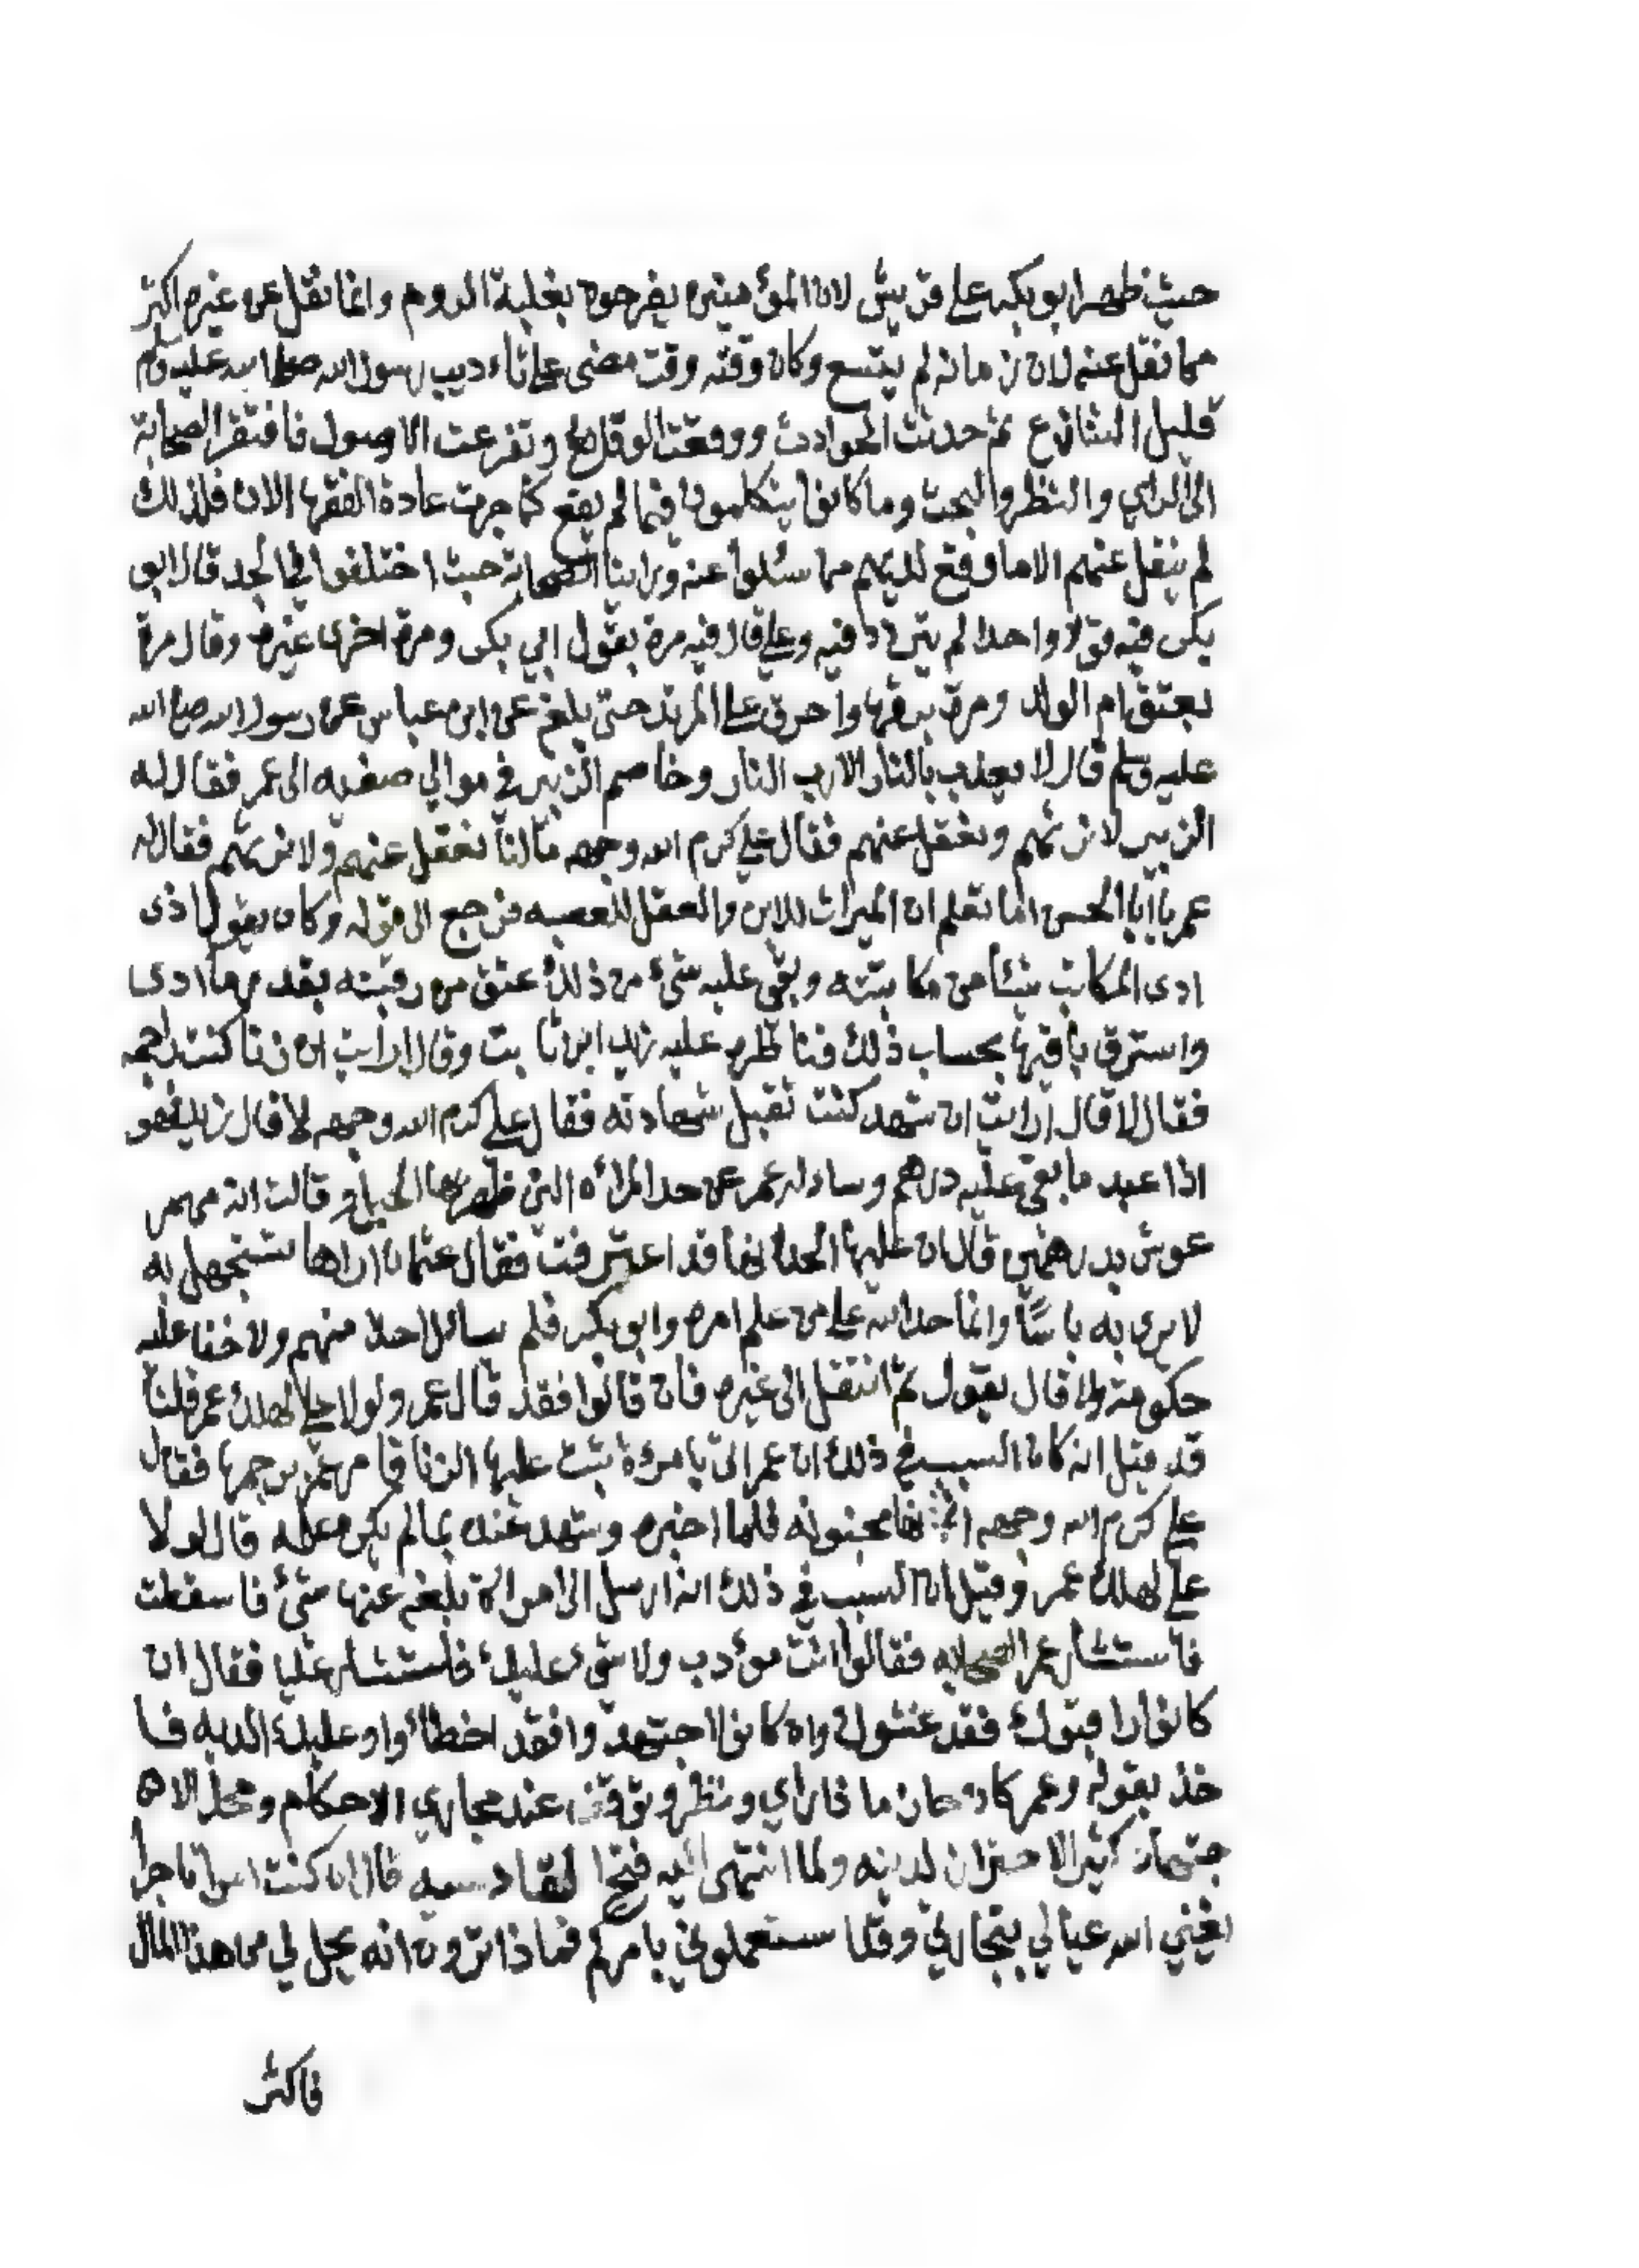 حيث ظهر ابو بكر على قريش لان المؤمنين يفرحون بغلبة الروم وانما نقل عن غيره اكثر
مما نقل عنه لان زمانه لم يتسع وكان وقته وقت مضى على تاديب رسول الله صلى الله عليه وسلم
قليل التنازع ثم حدثت الحوادث ووقعت الوقايع وتفرعت الاصول فافتقر الصحابة
الى الراي والنظر والبحث وما كانوا يتكلمون فيما لم يقع كما جرت عادة الفقها الان فلذلك
لم ينقل عنهم الا ما وقع لديهم مما سئلوا عنه وراينا الصحابة حيث اختلفوا في الجد قال ابو
بكر فيه قولا واحدا لم يتردد فيه وعلي قال فيه مرة بقول ابي بكر ومرة اخرى غيره وقال مرة
بعتق ام الولد ومرة برقها واحرق على المرتد حتى بلغه عن ابن عباس عن رسول الله صلى الله
عليه وسلم قال لا يعذب بالنار الا رب النار وخاصم الزبير في موالي صفيه الى عمر فقال له
الزبير لانرثهم ونعقل عنهم فقال علي كرم الله وجهه مالنا نعقل عنهم ولا نرثهم فقال له
عمر يا ابا الحسن اما تعلم ان الميراث للابن والعقل للعصبه فرجع الى قوله وكان يقول اذى
ادى المكاتب شيئا من مكاتبته وبقى عليه شئ من ذلك عتق من رقبته بقدر ما ادى
واسترق باقيها بحساب ذلك فناظره عليه زيد ابن ثابت وقال ارايت ان زنا كنت راجمه
فقال لا قال ارايت ان شهد كنت تقبل شهادته فقال علي كرم الله وجهه لا قال زيد فهو
اذا عبد ما بقى عليه درهم وساله عمر عن حد المرأه التي ظهر بها الحبل وقالت انه من
عوش بدرهمين قال ان عليها الحد انها قد اعترفت فقال عثمان اراها تستجهل به
لا يرى به باسًا وانما حد الله على من علم امره وابو بكر فلم يسال احد منهم ولا خفا عليه
حكومة ولا قال بقول ثم انتقل الى غيره فان قالوا فقد قال عمر ولولا علي لهلك عمر قلنا
قد قيل انه كان السبب في ذلك ان عمر اتى بامرءة ثبت عليها الزنا فامر عمر برجمها فقال
علي كرم الله وجهه انها مجنونه فلما اخبره وشهد عنده بما لم يكن معه قال لولا
علي لهلك عمر وقيل ان السبب في ذلك انه ارسل الى امراة بلغه عنها شئ فاسقطت
فاستشار عمر الصحابه فقالوا انت مؤدب ولا شيء عليك فاستشار عليا فقال ان
كانوا راقبوك فقد غشوك وان كانوا اجتهدوا فقد اخطأوا وعليك الديه فا
خذ بقوله وعمر كان حازما ذا راي ونظر وتوقف عند مجاري الاحكام ومحل الا
جتهاد كثير الاحتراز لدينه ولما انتهى اليه فتح القادسيه قال ان كنت امرا تاجرا
يغيني الله عيالي بتجارتي وقد استعملوني بامركم فماذا ترون انه يحل لي من هذا المال
فاكثر